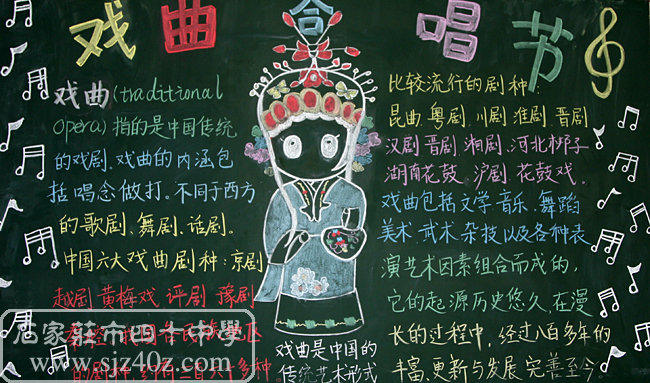 戏曲合唱节
戏曲(traditional
opera)指的是中国传统
的戏剧.戏曲的内涵包
括唱念做打。不同于西方
的歌剧、舞剧、话剧。
中国六大戏曲剧种:京剧
越剧 黄梅戏.评剧 豫剧
的剧种,约有三百六十多种.
戏曲是中国的
传统艺术形式
比较流行的剧种:
昆曲.粤剧.川剧.淮剧.晋剧
汉剧晋剧.湘剧.河北梆子
湖南花鼓.沪剧.花鼓戏.
戏曲包括文学音乐、舞蹈
美术.武术.杂技以及各种表
演艺术因素组合而成的,
它的起源历史悠久,在漫
长的过程中,经过八百多年的
丰富、更新与发展,完善至今。
石家莊市四十中學
www.sjz40z.com